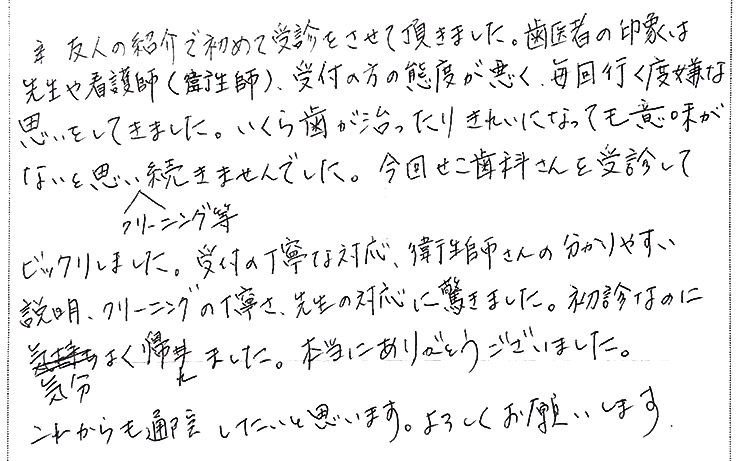 友人の紹介で初めて受診をさせて頂きました。歯医者の印象は
先生や看護師(衛生師)、受付の方の態度が悪く、毎回行く度嫌な
思いをしてきました。いくら歯が治ったりきれいになっても意味が
ないと思い続きませんでした。今回せこ歯科さんを受診して
クリーニング等
ビックリしました。受付の丁寧な対応、衛生師さんの分かりやすい
説明、クリーニングの丁寧さ、先生の対応に驚きました。初診なのに
気持ちよく帰れました。本当にありがとうございました。
気分
これからも通院したいと思います。よろしくお願いします.